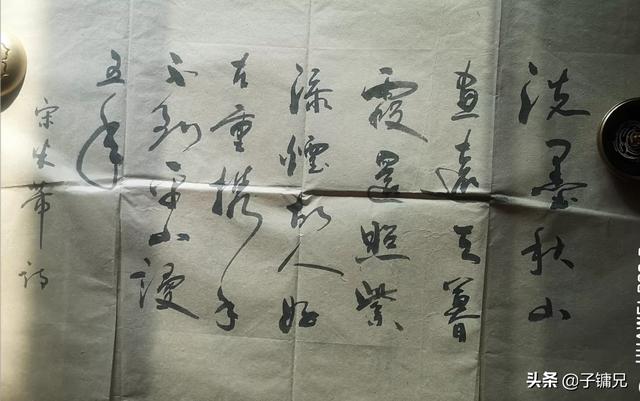 淡墨秋山
畫遠天暮
霞還照紫
添煙故人好
在重攜手
不到平山謾
五年
宋米芾詩
头条 @子镛兄